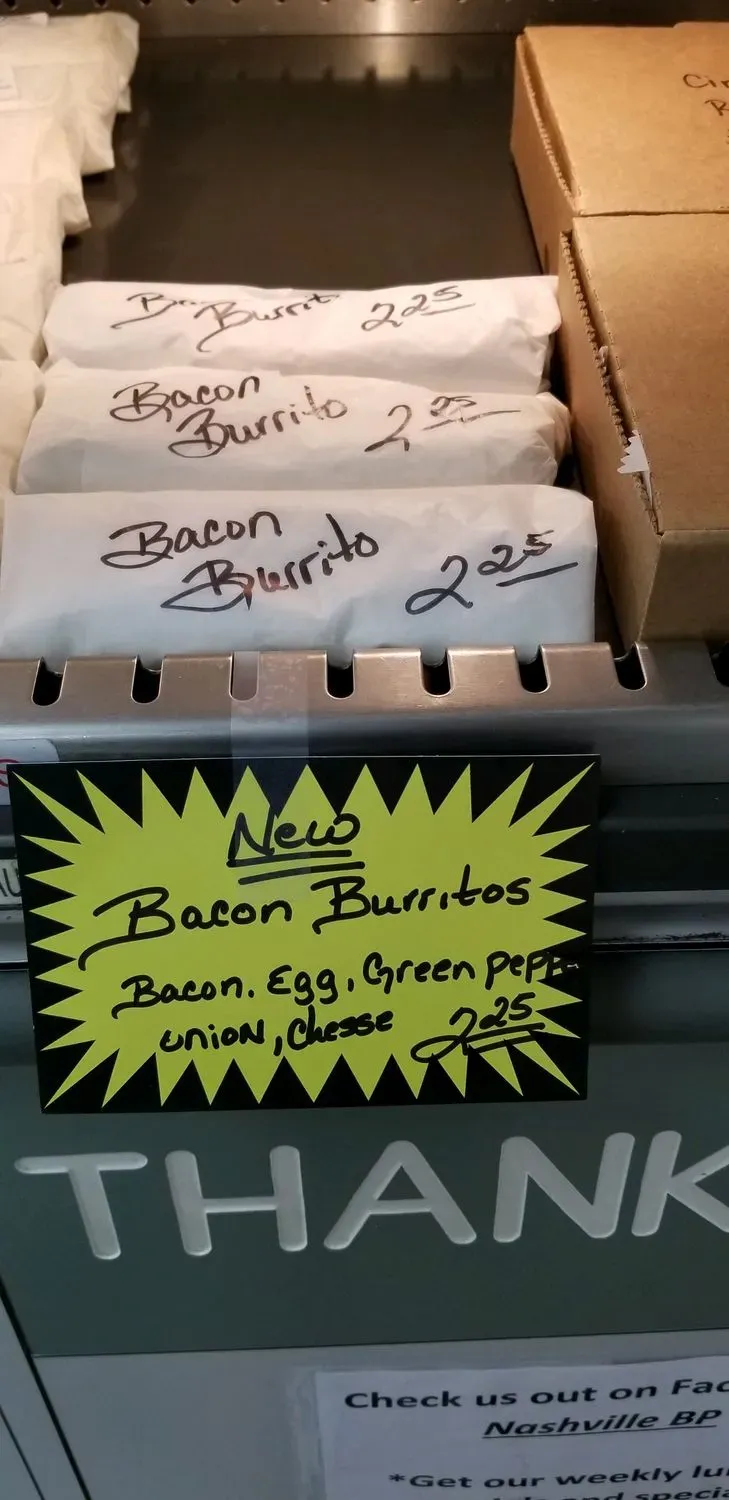 Burrito 2 25
Bacon
Burrito 2 25
Bacon
Burrito 2 25
New
Bacon Burritos
Bacon. Egg, Green Pepp
onion, Chesse 2 25
THANK
Check us out on Fac
Nashville BP
*Get our weekly lu
and specia